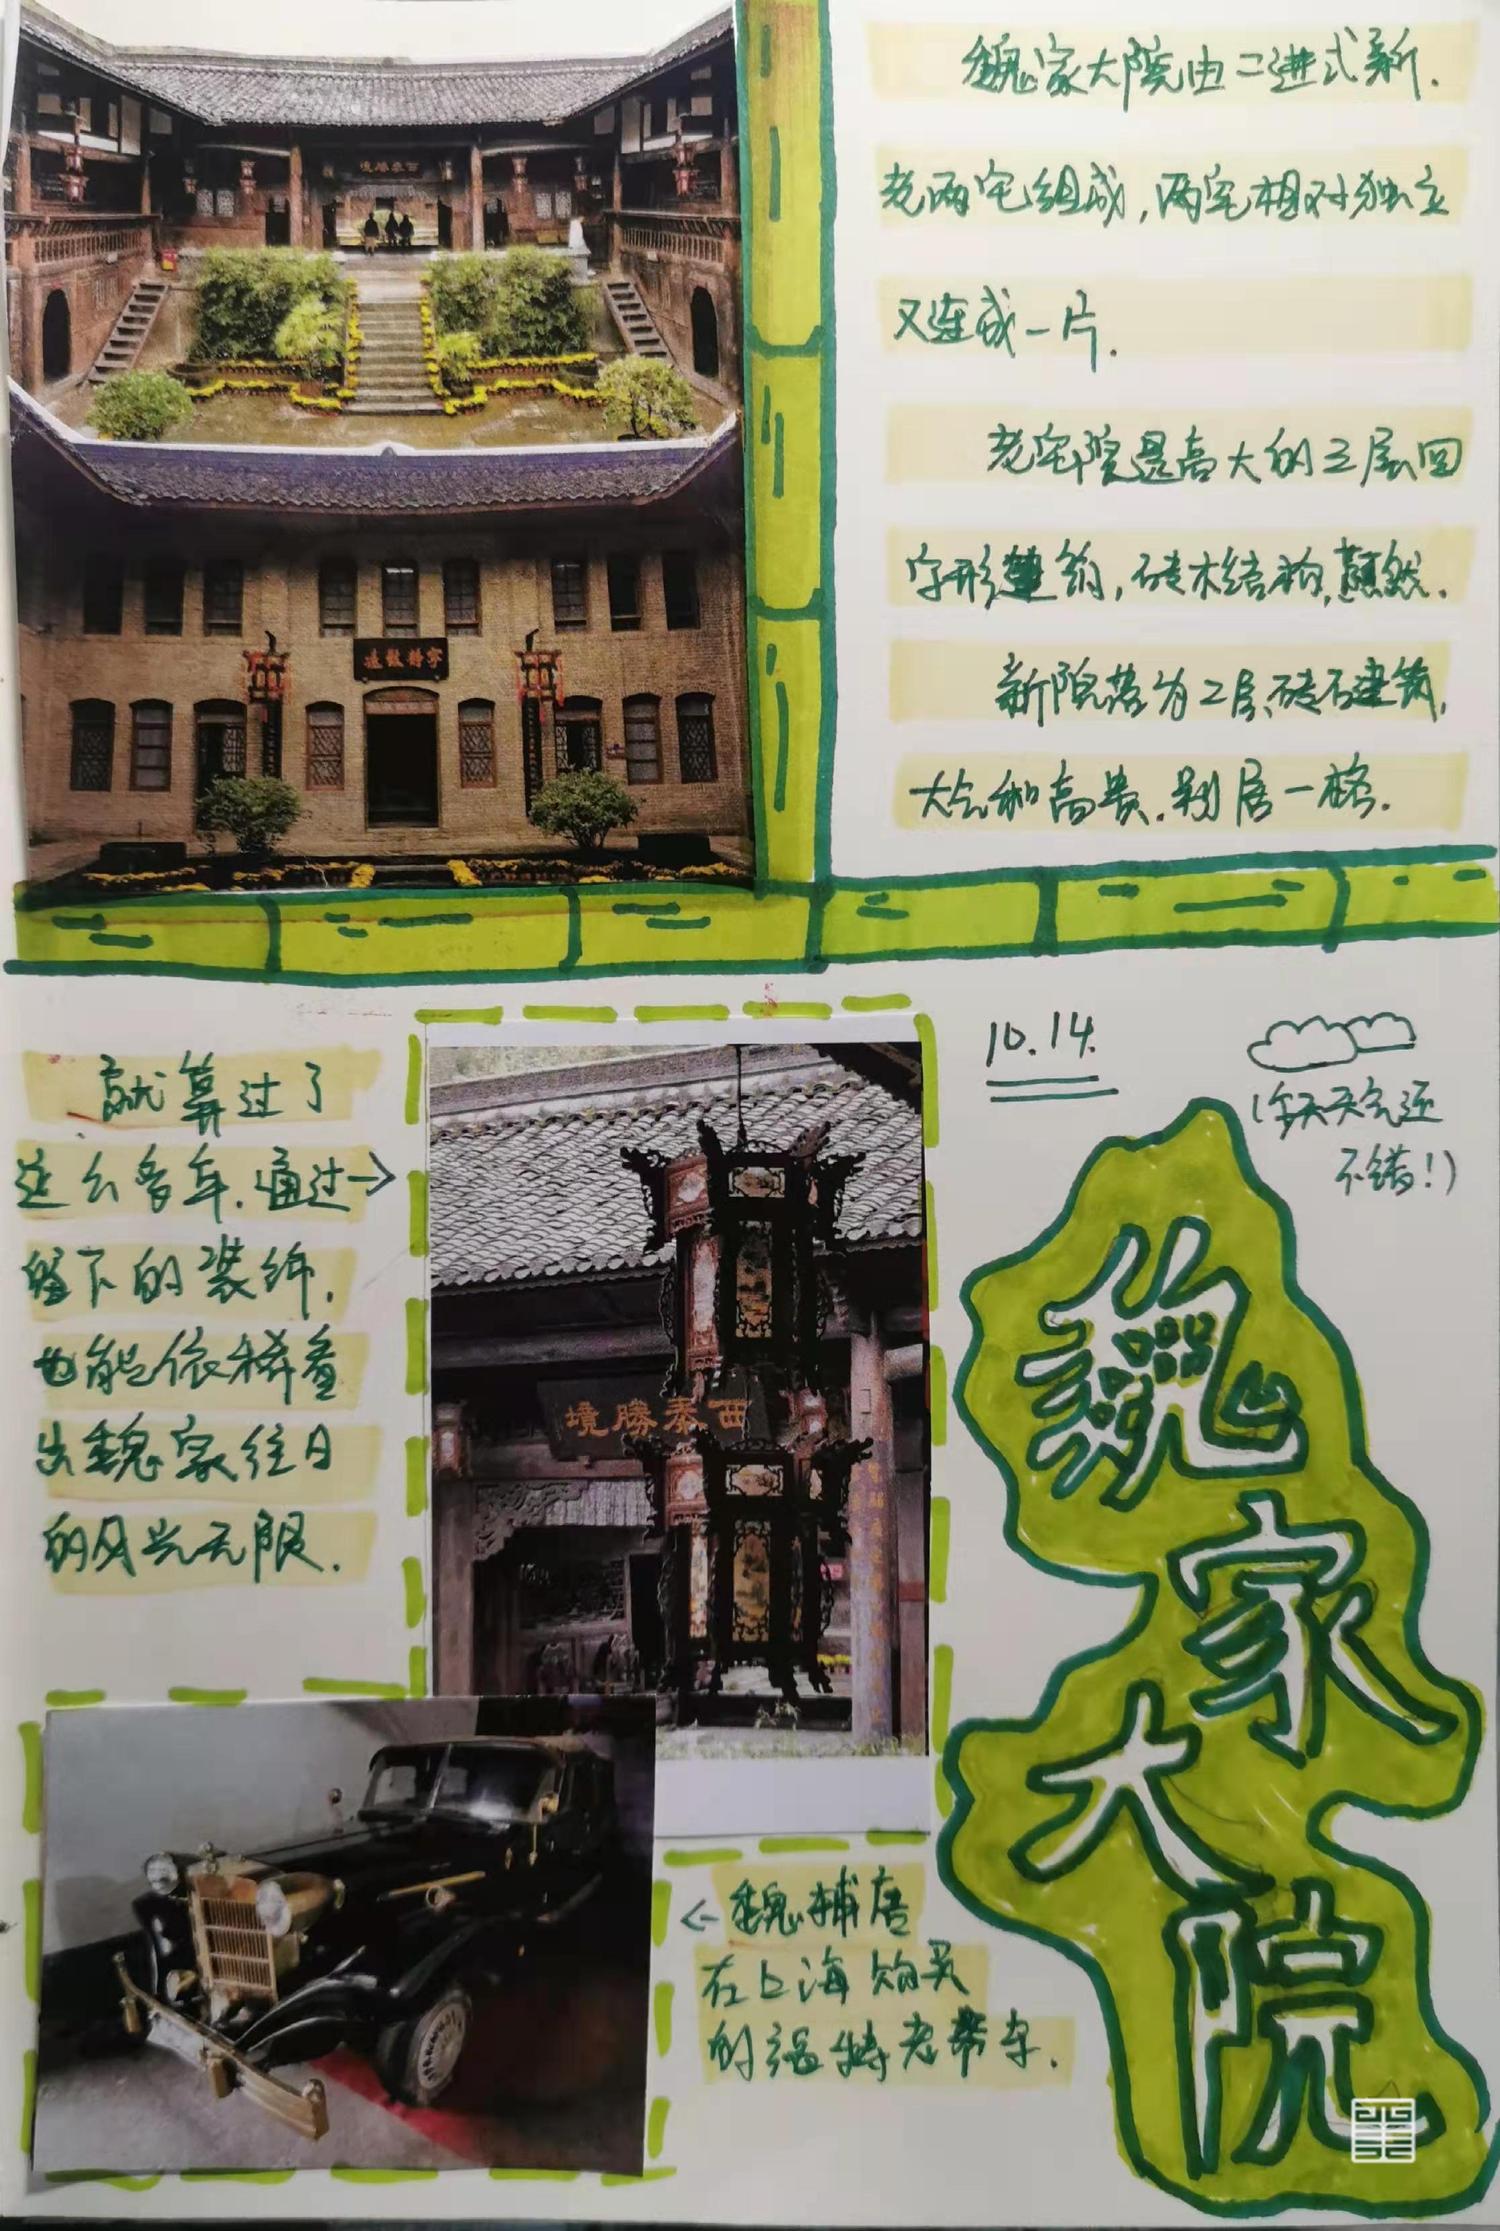 魏家大院由二进式新.
老两宅组成,两宅相对独立
又连成一片.
老宅院是高大的三层回
字形建筑,砖木结构,蔚然.
新院落为二层砖石建筑,
大气和高贵.别居一格.
西秦勝境
寧静致遠
就算过了
这么多年.通过→
留下的装饰,
也能依稀看
出魏家往日
的风光无限.
西秦勝境
10.14.
(今天天气还
不错!)
魏
家
大
院
←魏辅唐
在上海购买
的福特老爷车.